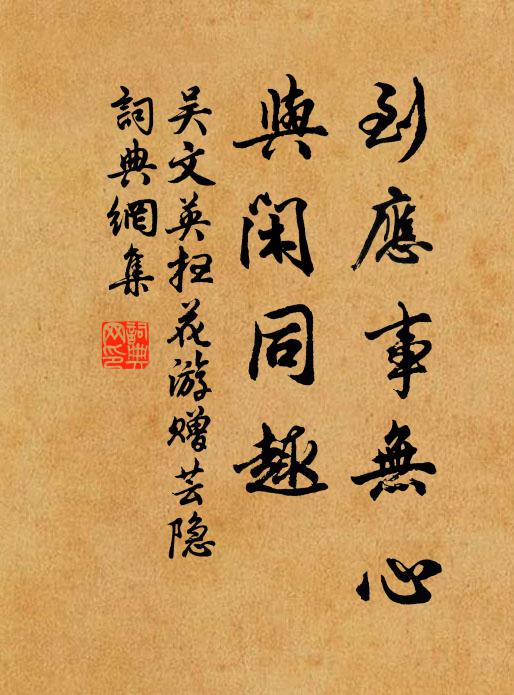 到應事無心
與閑同趣
吴文英扫花游赠芸隐
詞典網集
詞典
网印